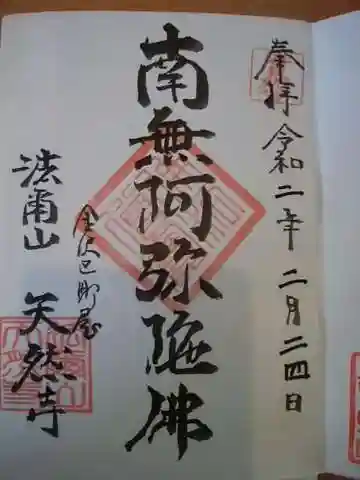 奉拝 令和二年 二月二四日
南無阿弥陀佛
金沢区町屋
法爾山 天然寺